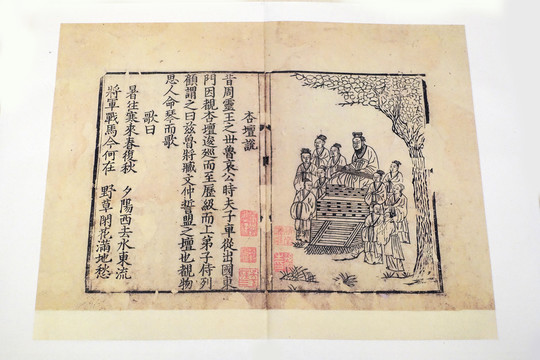 杏壇說
昔周靈王之世魯哀公時夫子車從出國東
門因觀杏壇逡巡而至歷級而上弟子侍列
顧謂之曰茲魯將臧文仲誓盟之壇也覩物
思人命琴而歌
歌曰
暑往寒來春復秋 夕陽西去水東流
將軍戰馬今何在 野草閑花滿地愁